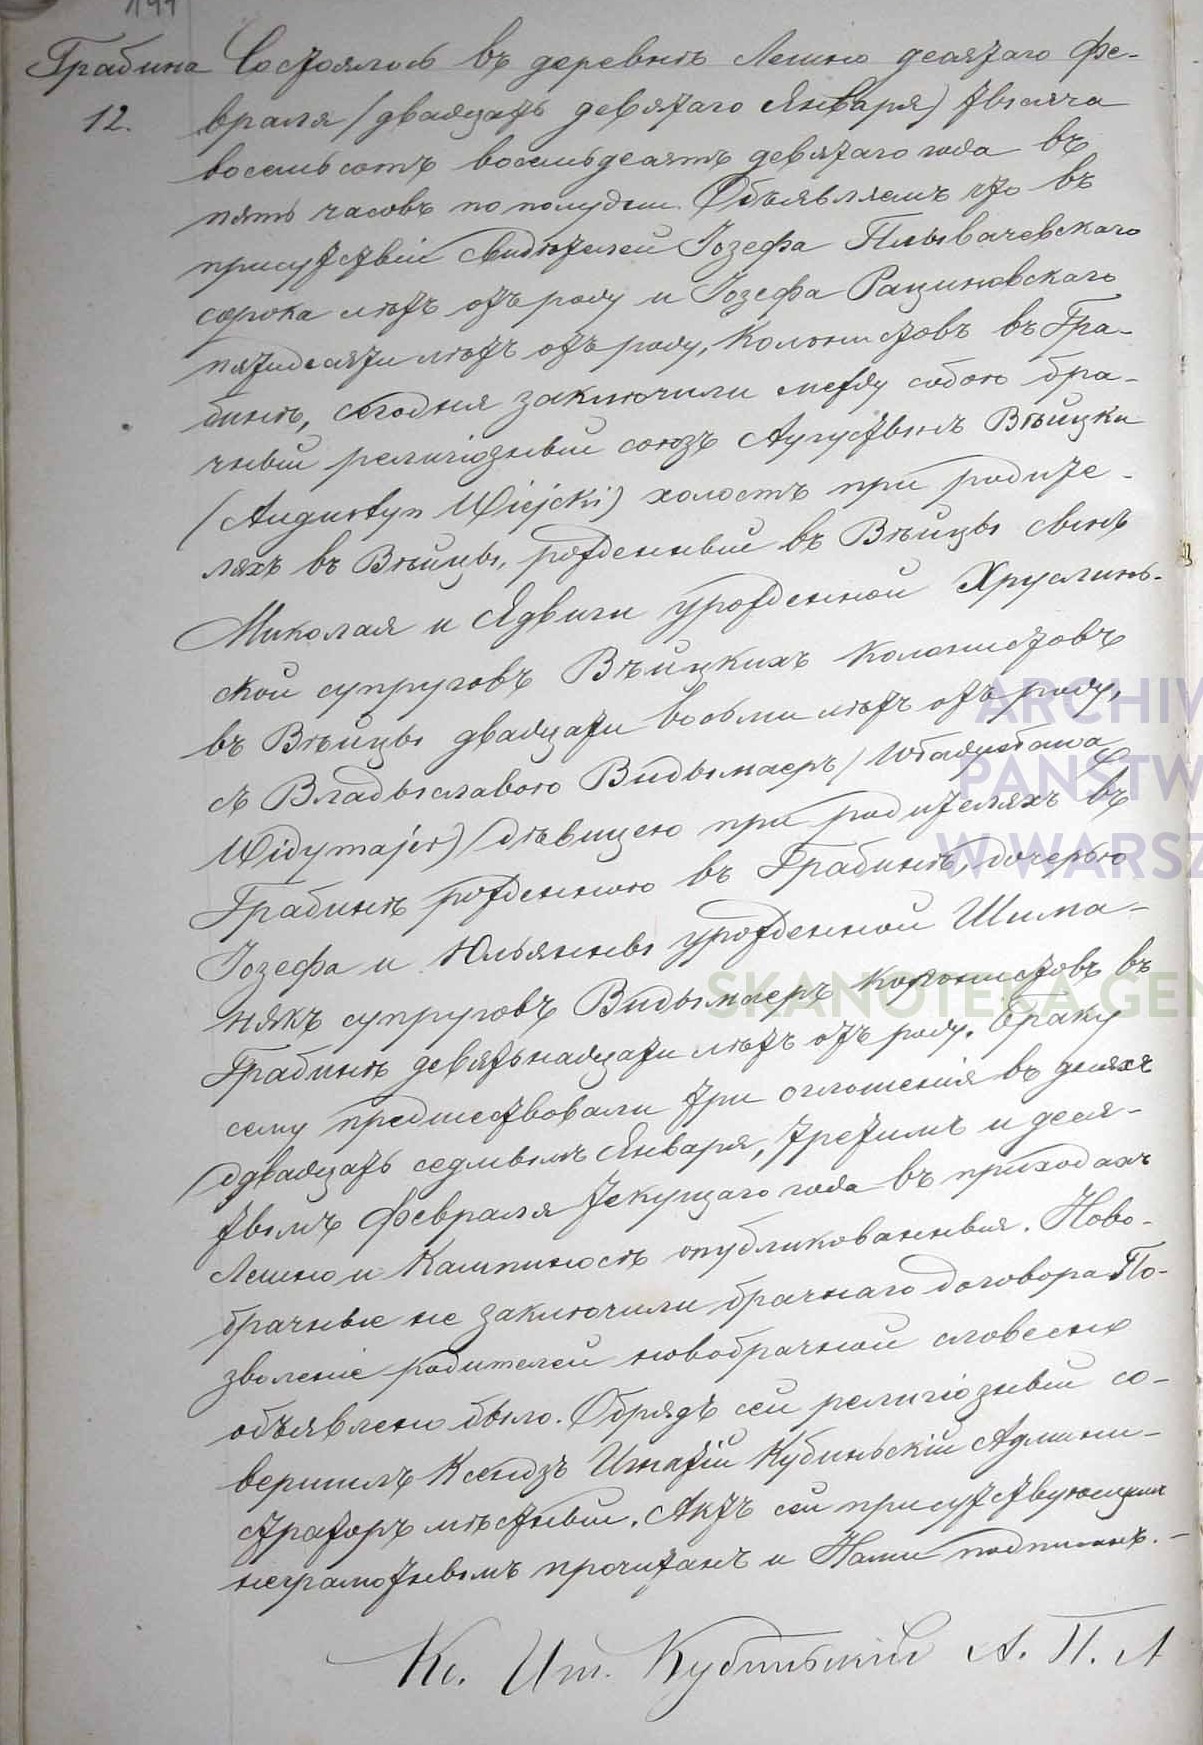 199
Грабина
12.
Состоялось въ деревнѣ Лешно десятаго Фе-
враля (двадцать девятаго Января) тысяча
восемьсотъ восемьдесятъ девятаго года въ
пять часовъ по полудни. Объявляемъ что въ
присутствіи свидѣтелей Іозефа Плывачевскаго
сорока лѣтъ отъ роду и Іозефа Рациновскаго
пятидесяти лѣтъ отъ роду, колонистовъ въ Гра-
бинѣ, сегодня заключили между собою бра-
чный религіозный союзъ Аугустынъ Вѣйцки
(Augustyn Wiejcki) холостъ при родите-
ляхъ въ Вѣйцы, рожденный въ Вѣйцы сынъ
Миколая и Ядвиги урожденной Хруслинь-
ской супруговъ Вѣйцкихъ колонистовъ
въ Вѣйцы двадцати восьми лѣтъ отъ роду,
съ Владыславою Видымаеръ (Władysława
Widymajer) дѣвицею при родителяхъ въ
Грабинѣ рожденною въ Грабинѣ, дочерью
Іозефа и Юльянны урожденной Шима-
някъ супруговъ Видымаеръ колонистовъ въ
Грабинѣ девятьнадцати лѣтъ отъ роду. Браку
сему предшествовали три оглошенія въ дняхъ
двадцать седмымъ Января, третимъ и деся-
тымъ Февраля текущаго года въ приходахъ
Лешно и Кампиносъ опубликованныя. Ново-
брачные не заключили брачнаго договора По-
зволеніе родителей новобрачной словесно
объявлено было. Обрядъ сей религіозный со-
вершилъ Ксендзъ Игнатій Кубиньскій Админи-
страторъ мѣстный. Актъ сей присутствующимъ
неграмотнымъ прочитанъ и Нами подписанъ. -
Кс. Иг. Кубиньскій А. П. Л
ARCHIW
PAŃSTW
W WARSZ
SKANOTEKA.GEN